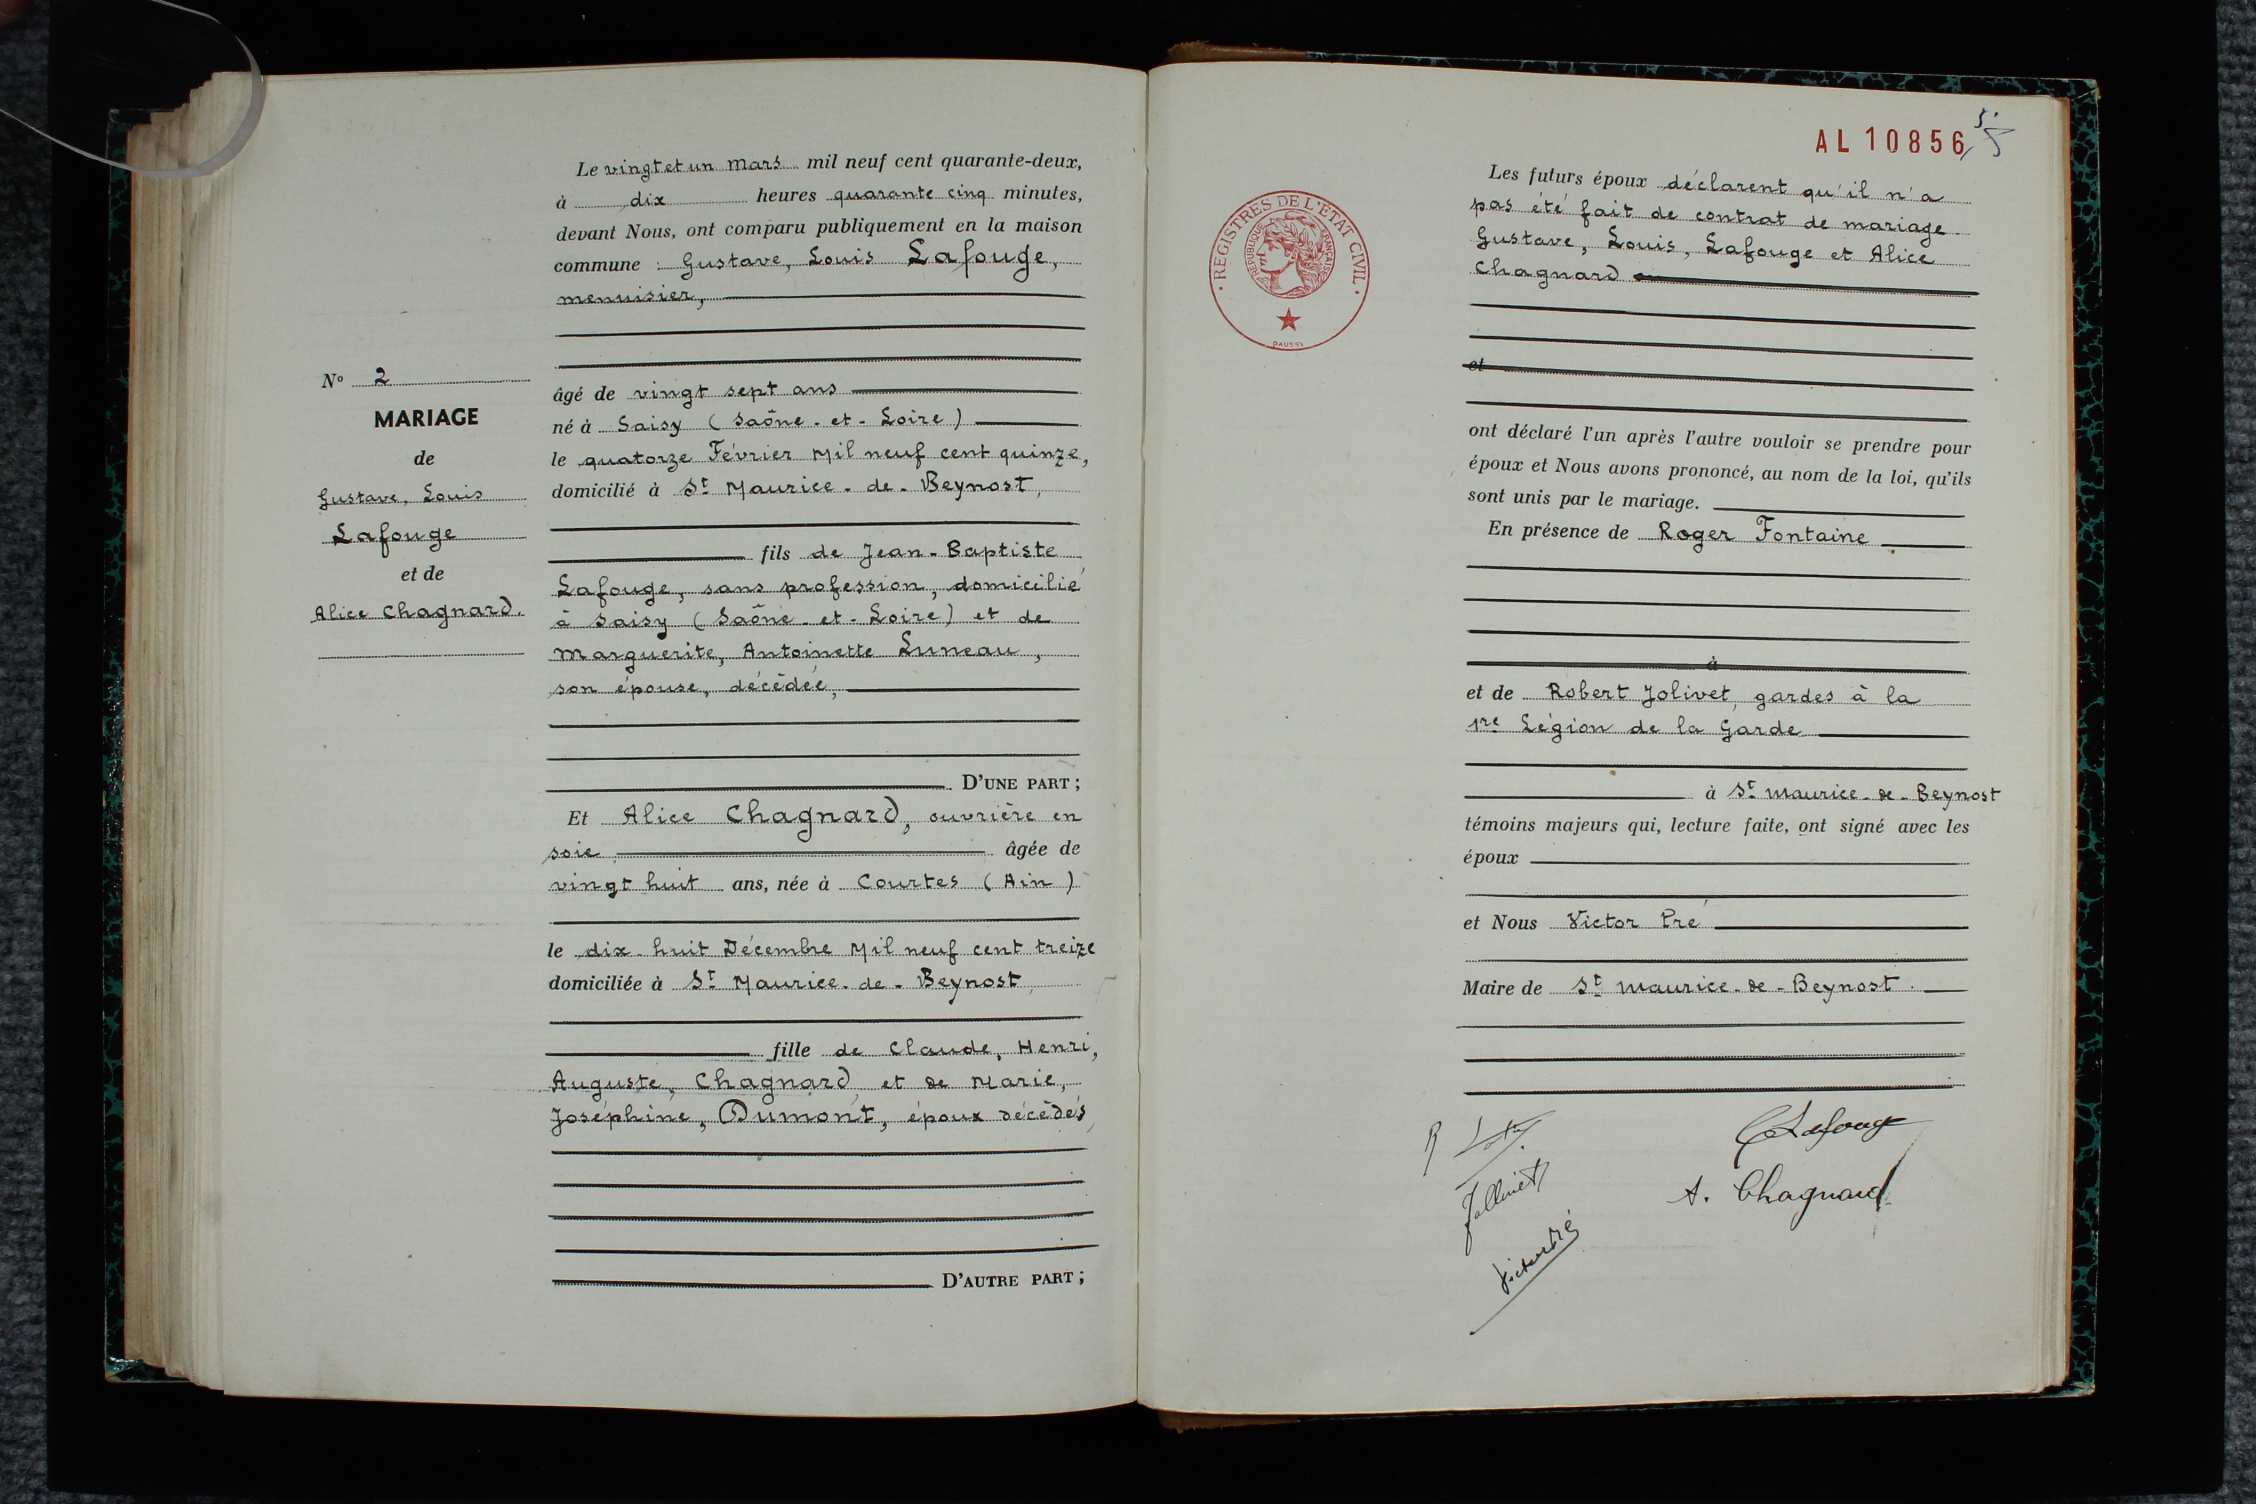 Le vingt et un Mars mil neuf cent quarante-deux,
à dix heures quarante cinq minutes,
devant Nous, ont comparu publiquement en la maison
commune : Gustave, Louis Lafouge,
menuisier,
âgé de vingt sept ans
né à Saisy (Saône-et-Loire)
le quatorze Février Mil neuf cent quinze,
domicilié à St Maurice-de-Beynost,
fils de Jean-Baptiste
Lafouge, sans profession, domicilié
à Saisy (Saône-et-Loire) et de
Marguerite, Antoinette Luneau,
son épouse, décédée,
D'UNE PART ;
Et Alice Chagnard, ouvrière en
soie âgée de
vingt huit ans, née à Courtes (Ain)
le dix-huit Décembre Mil neuf cent treize
domiciliée à St Maurice-de-Beynost,
fille de Claude, Henri,
Auguste, Chagnard et de Marie,
Joséphine, Dumont, époux décédés,
D'AUTRE PART ;
No 2
MARIAGE
de
Gustave, Louis
Lafouge
et de
Alice Chagnard.
AL 10856
5
REGISTRES DE L'ÉTAT CIVIL
RÉPUBLIQUE FRANÇAISE
DAUSSY
Les futurs époux déclarent qu'il n'a
pas été fait de contrat de mariage.
Gustave, Louis, Lafouge et Alice
Chagnard
et
ont déclaré l'un après l'autre vouloir se prendre pour
époux et Nous avons prononcé, au nom de la loi, qu'ils
sont unis par le mariage.
En présence de Roger Fontaine
à
et de Robert Jolivet, gardes à la
1re Légion de la Garde
à St Maurice-de-Beynost
témoins majeurs qui, lecture faite, ont signé avec les
époux
et Nous Victor Pré
Maire de St Maurice-de-Beynost.
G Lafouge
A. Chagnard
Jollivet
Victor Pré